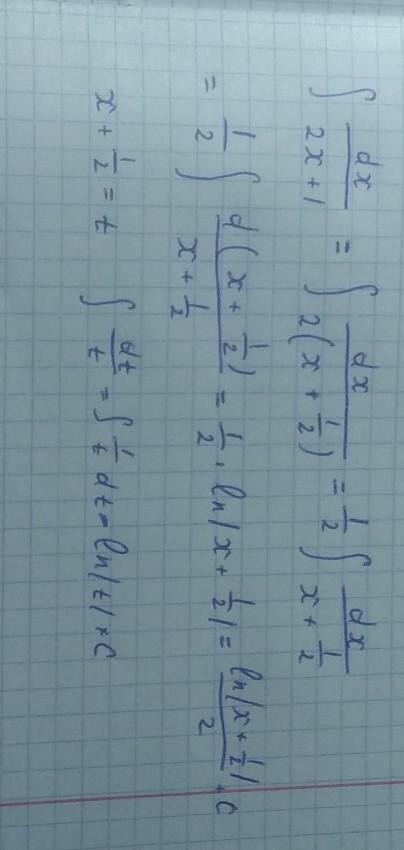 ∫ dx/(2x+1) = ∫ dx/(2(x + 1/2)) = 1/2 ∫ dx/(x + 1/2)
= 1/2 ∫ d(x + 1/2)/(x + 1/2) = 1/2 · ln|x + 1/2| = ln|x + 1/2|/2 + C
x + 1/2 = t ∫ dt/t = ∫ 1/t dt = ln|t| + C